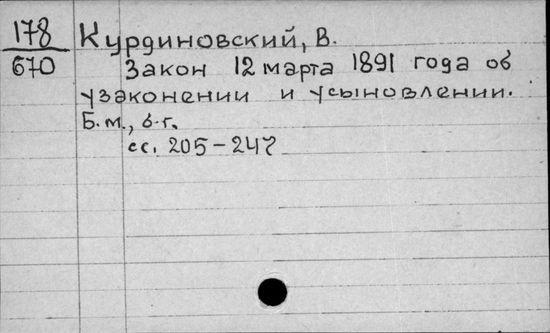 178
670
Курдиновский, В.
Закон 12 марта 1891 года об
узаконении и усыновлении.
Б.м., б.г.
сс. 205-247